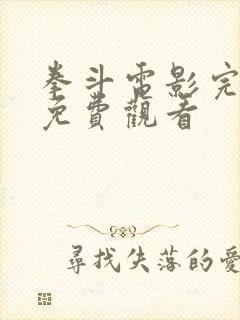 拳斗電影完
免費觀看
尋找失落的愛